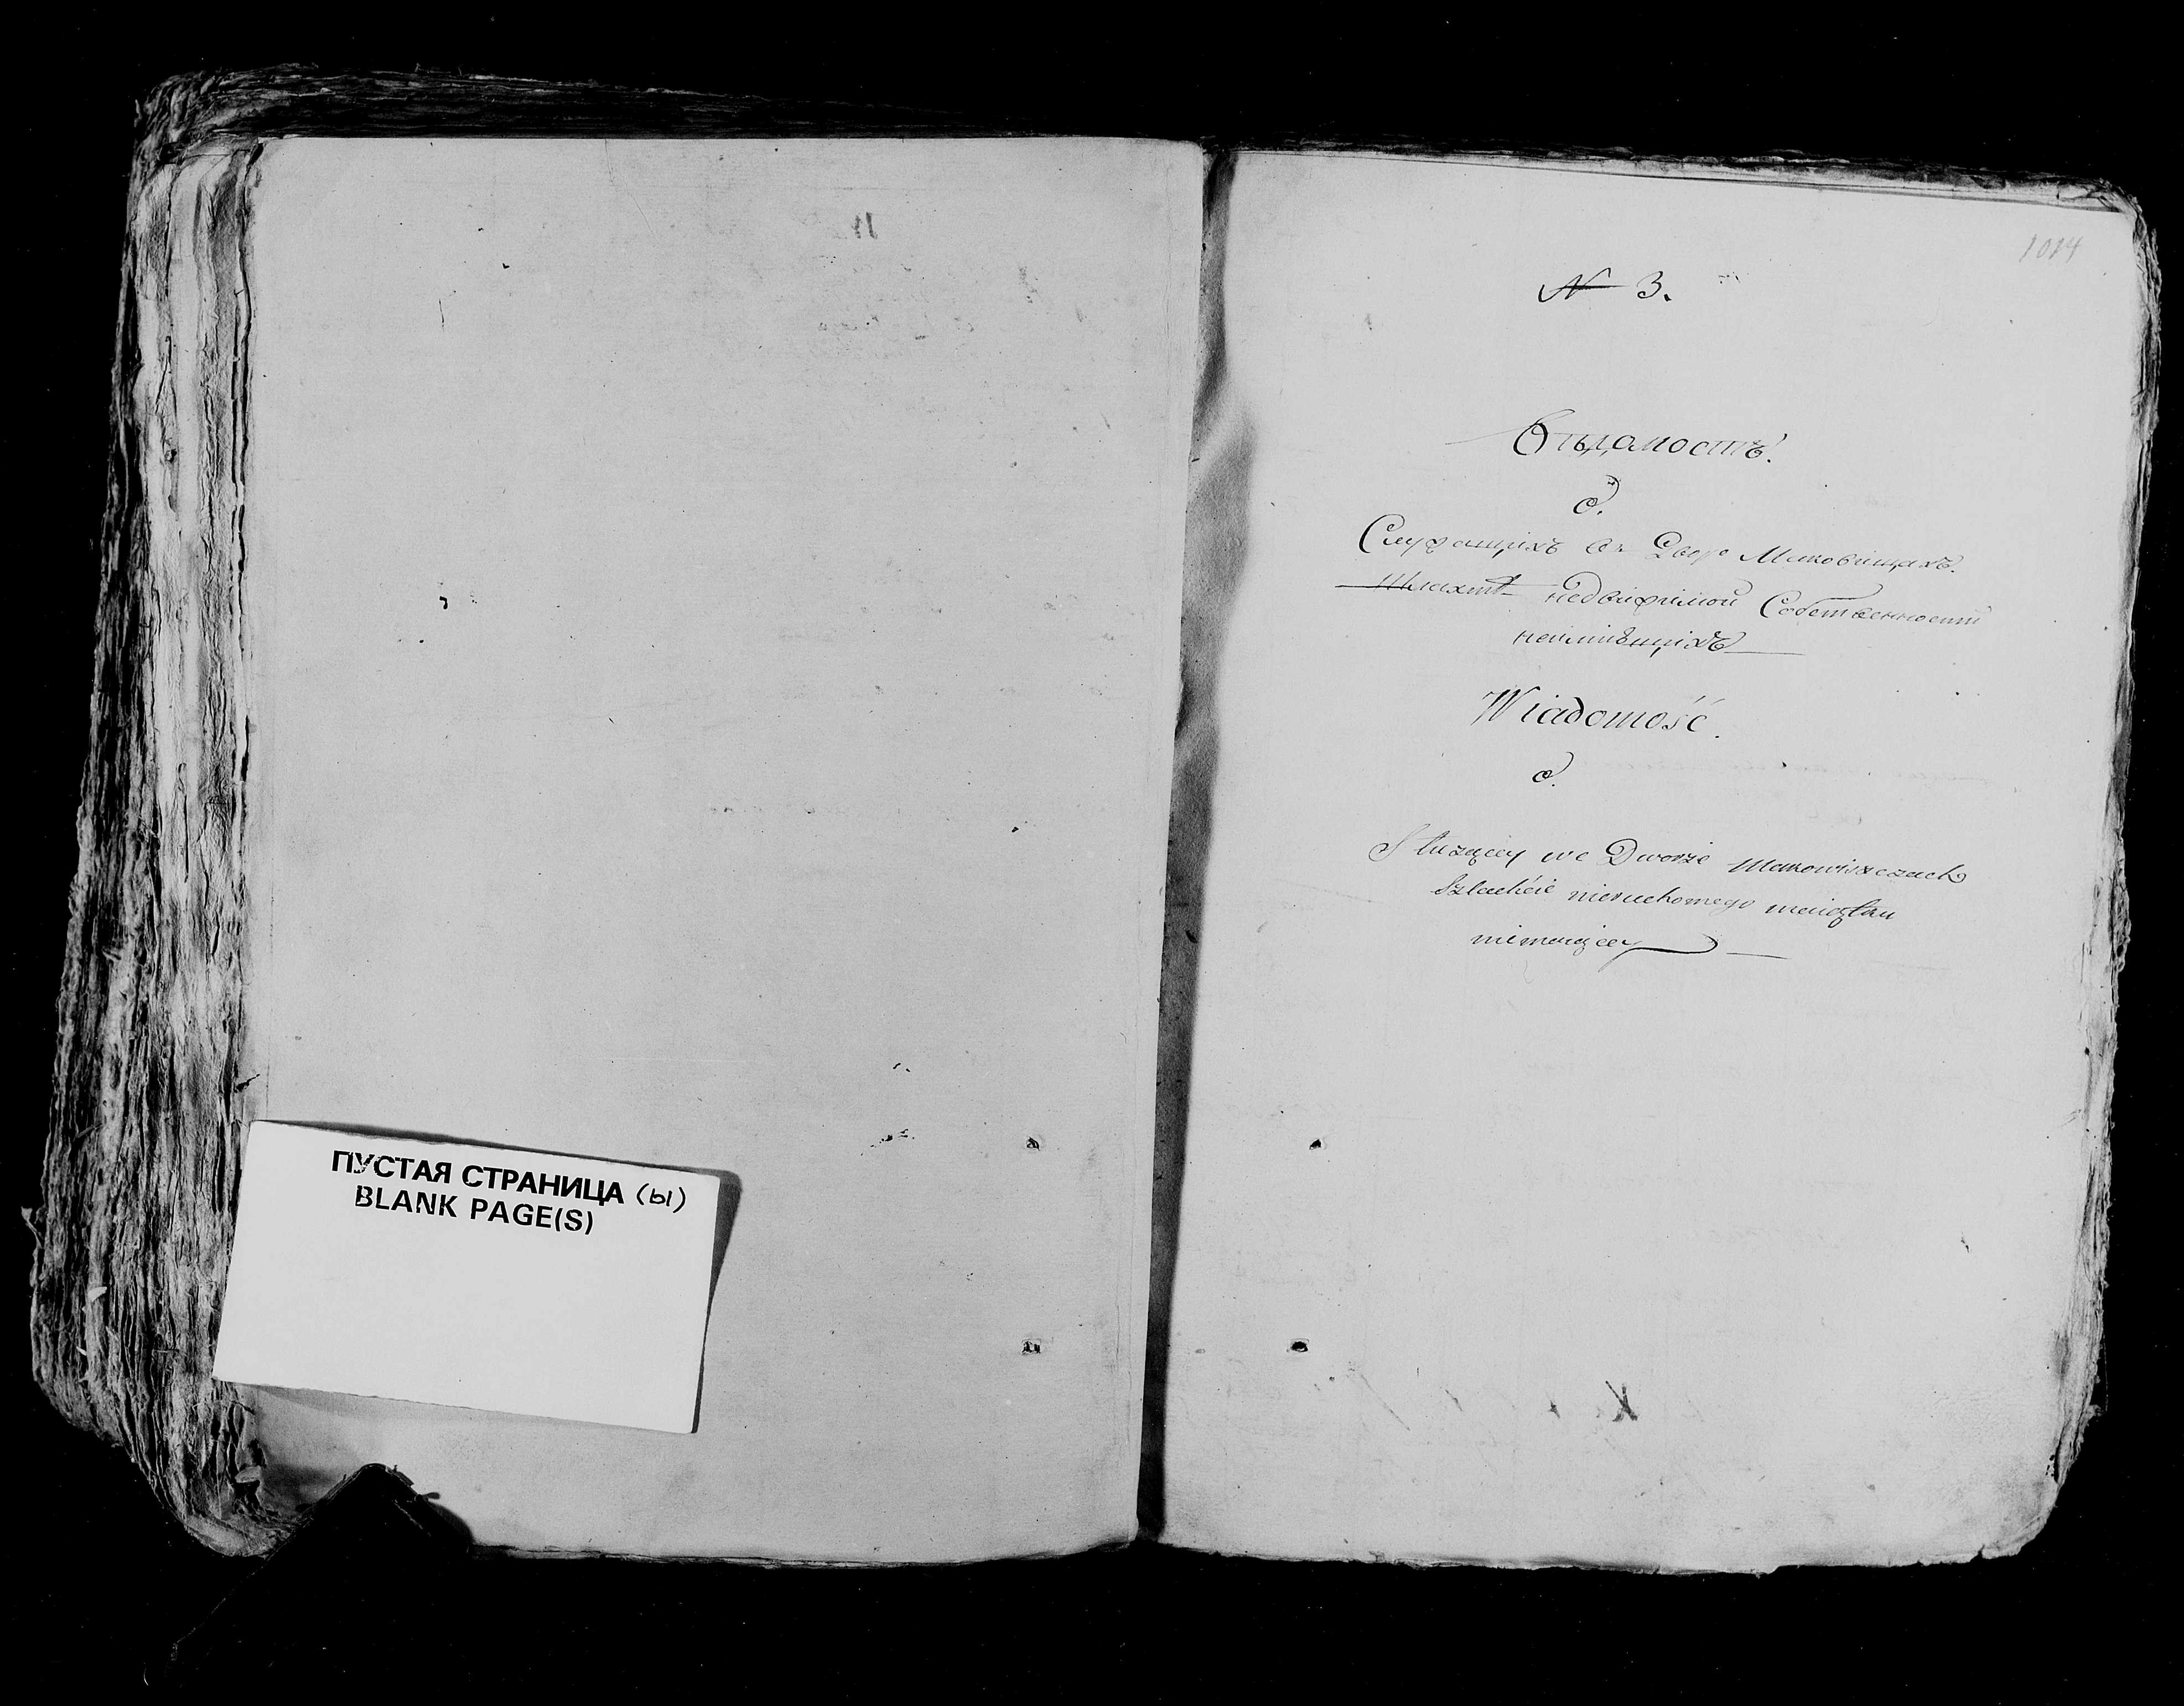 ПУСТАЯ СТРАНИЦА (ы)
BLANK PAGE(S)
1014
N 3.
Вѣдомость.
О.
Служащихъ въ Дворѣ Маковищахъ.
Шляхтѣ недвижимой Собственности
неимѣющихъ
Wiadomość.
O.
Służącey we Dworze Makowiszczach
Szlachcie nieruchomego maiątku
niemaiącey